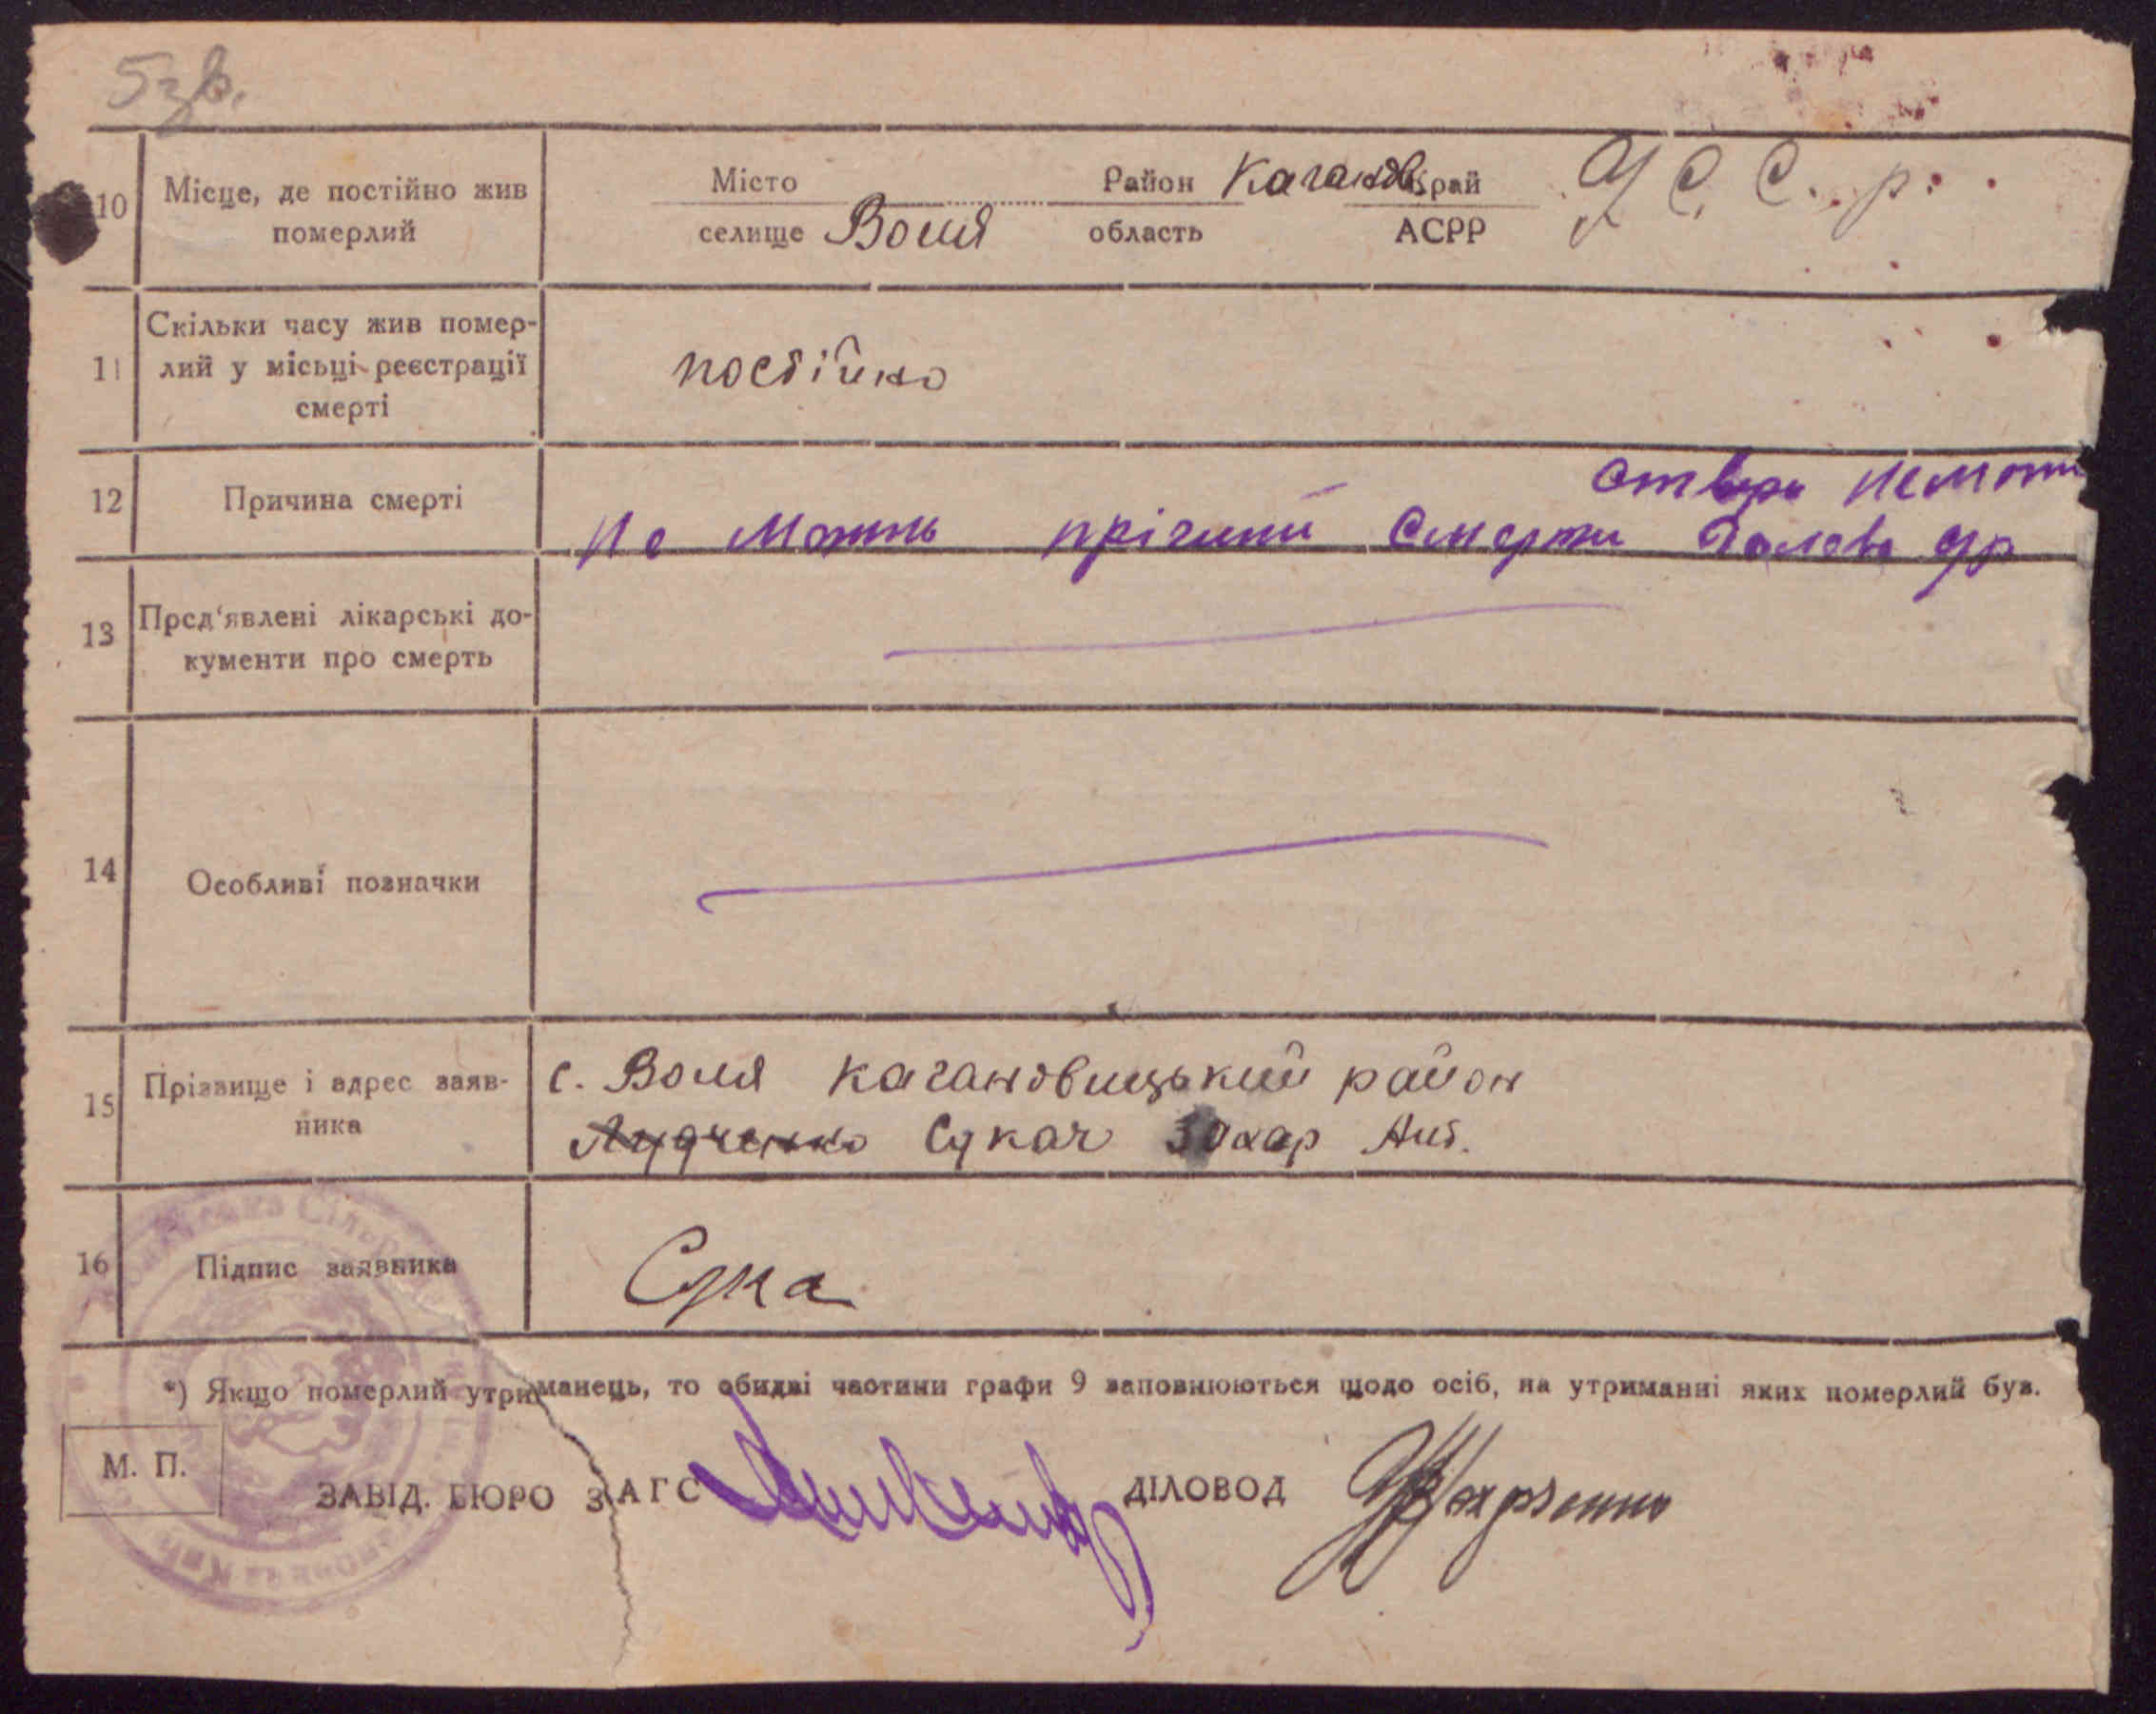 5зв.
10 Місце, де постійно жив померлий
Місто Район Каганов. край У С. С. р.
селище Воля область АСРР
11 Скільки часу жив помер-
лий у місьці реєстрації
смерті
постійно
12 Причина смерті
Не Можть прічини Смерти
13 Пред'явлені лікарські до-
кументи про смерть
14 Особливі позначки
15 Прізвище і адрес заяв-
ника
с. Воля Кагановицький район
Сукач Захар Ант.
16 Підпис заявника
Сука
*) Якщо померлий утриманець, то обидві частини графи 9 заповнюються щодо осіб, на утриманні яких померлий був.
М. П.
ЗАВІД. БЮРО ЗАГС ДІЛОВОД